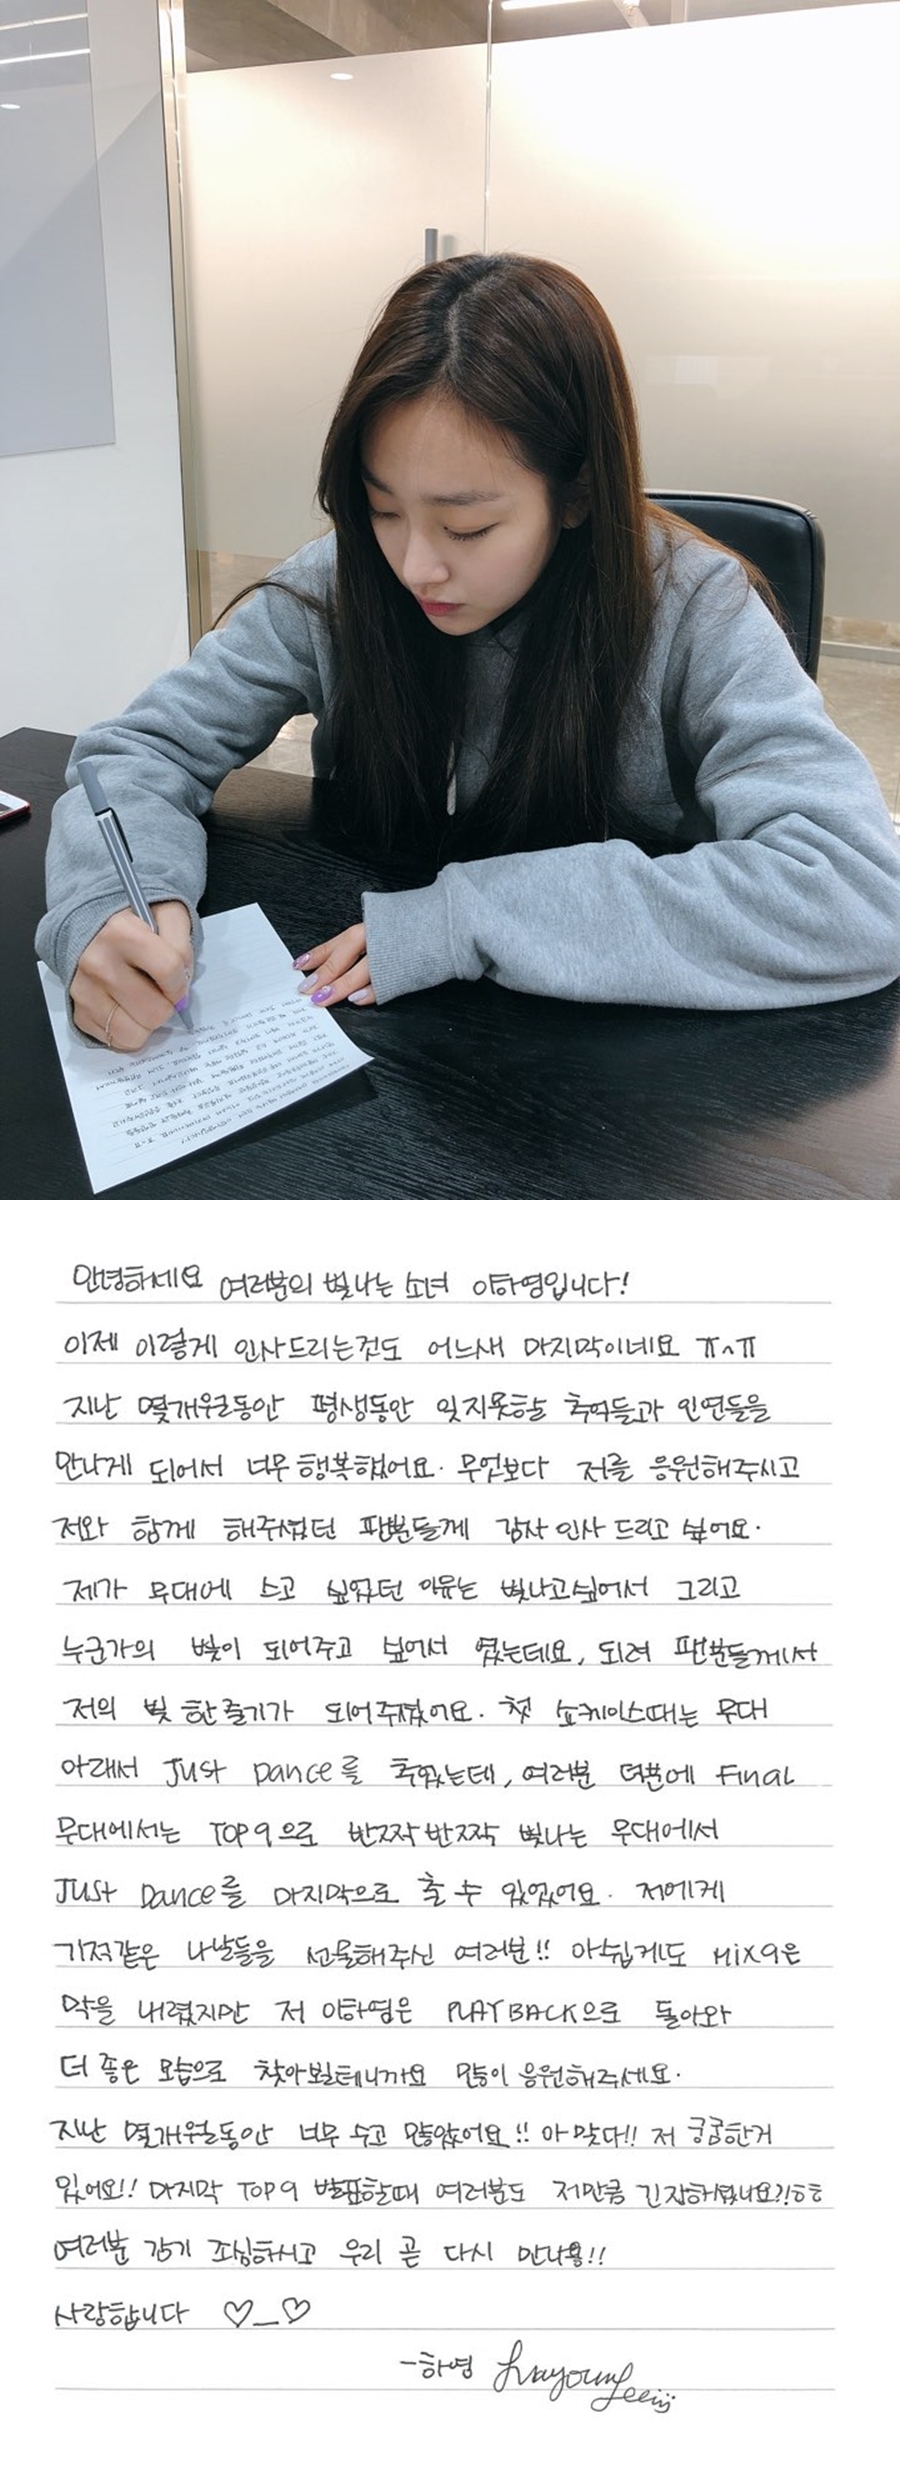 안녕하세요 여러분의 빛나는 소녀 이하영입니다!
이제 이렇게 인사드리는것도 어느새 마지막이네요 ㅠㅅㅠ
지난 몇개월동안 평생동안 잊지못할 추억들과 인연들을
만나게 되어서 너무 행복했어요. 무엇보다 저를 응원해주시고
저와 함께 해주셨던 팬분들께 감사 인사 드리고 싶어요.
제가 무대에 스고 싶었던 이유는 빛나고싶어서 그리고
누군가의 빛이 되어주고 싶어서 였는데요, 되려 팬분들께서
저의 빛 한줄기가 되어주셨어요. 첫 쇼케이스때는 무대
아래서 Just Dance를 추었는데, 여러분 덕분에 Final
무대에서는 TOP9으로 반짝반짝 빛나는 무대에서
Just Dance를 마지막으로 출 수 있었어요. 저에게
기적같은 나날들을 선물해주신 여러분!! 아쉽게도 MIX9은
막을 내렸지만 저 이하영은 PLAYBACK으로 돌아와
더 좋은 모습으로 찾아뵐테니까요 많이 응원해주세요.
지난 몇개월동안 너무 수고 많았어요!! 아 맞다!! 저 궁금한거
있어요!! 마지막 TOP9 발표할때 여러분도 저만큼 긴장하셨나요?!ㅎㅎ
여러분 감기 조심하시고 우리 곧 다시 만나용!!
사랑합니다 ♡_♡
-하영 hayoung